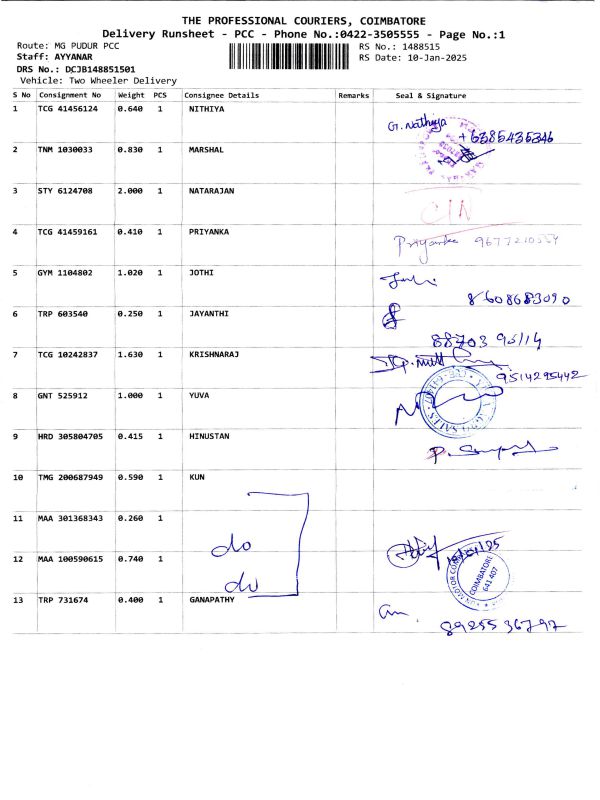 THE PROFESSIONAL COURIERS, COIMBATORE
Delivery Runsheet - PCC - Phone No.:0422-3505555 - Page No.:1
Route: MG PUDUR PCC
RS No.: 1488515
Staff: AYYANAR
RS Date: 10-Jan-2025
DRS No.: DCJB148851501
Vehicle: Two Wheeler Delivery
S No Consignment No Weight PCS Consignee Details Remarks Seal & Signature
1 TCG 41456124 0.640 1 NITHIYA
G. Nathiya
+6385435346
2 TNM 1030033 0.830 1 MARSHAL
3 STY 6124708 2.000 1 NATARAJAN
4 TCG 41459161 0.410 1 PRIYANKA
Priyanka
5 GYM 1104802 1.020 1 JOTHI
8608683090
6 TRP 603540 0.250 1 JAYANTHI
7 TCG 10242837 1.630 1 KRISHNARAJ
9514295442
8 GNT 525912 1.000 1 YUVA
9 HRD 305804705 0.415 1 HINUSTAN
10 TMG 200687949 0.590 1 KUN
11 MAA 301368343 0.260 1
do
12 MAA 100590615 0.740 1
do
COIMBATORE
641 407
13 TRP 731674 0.400 1 GANAPATHY
8925536797